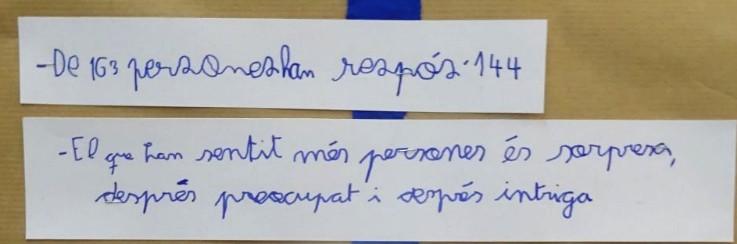 -De 163 persones han respós 144
-El que han sentit més persones és sorpresa,
després preocupat i després intriga